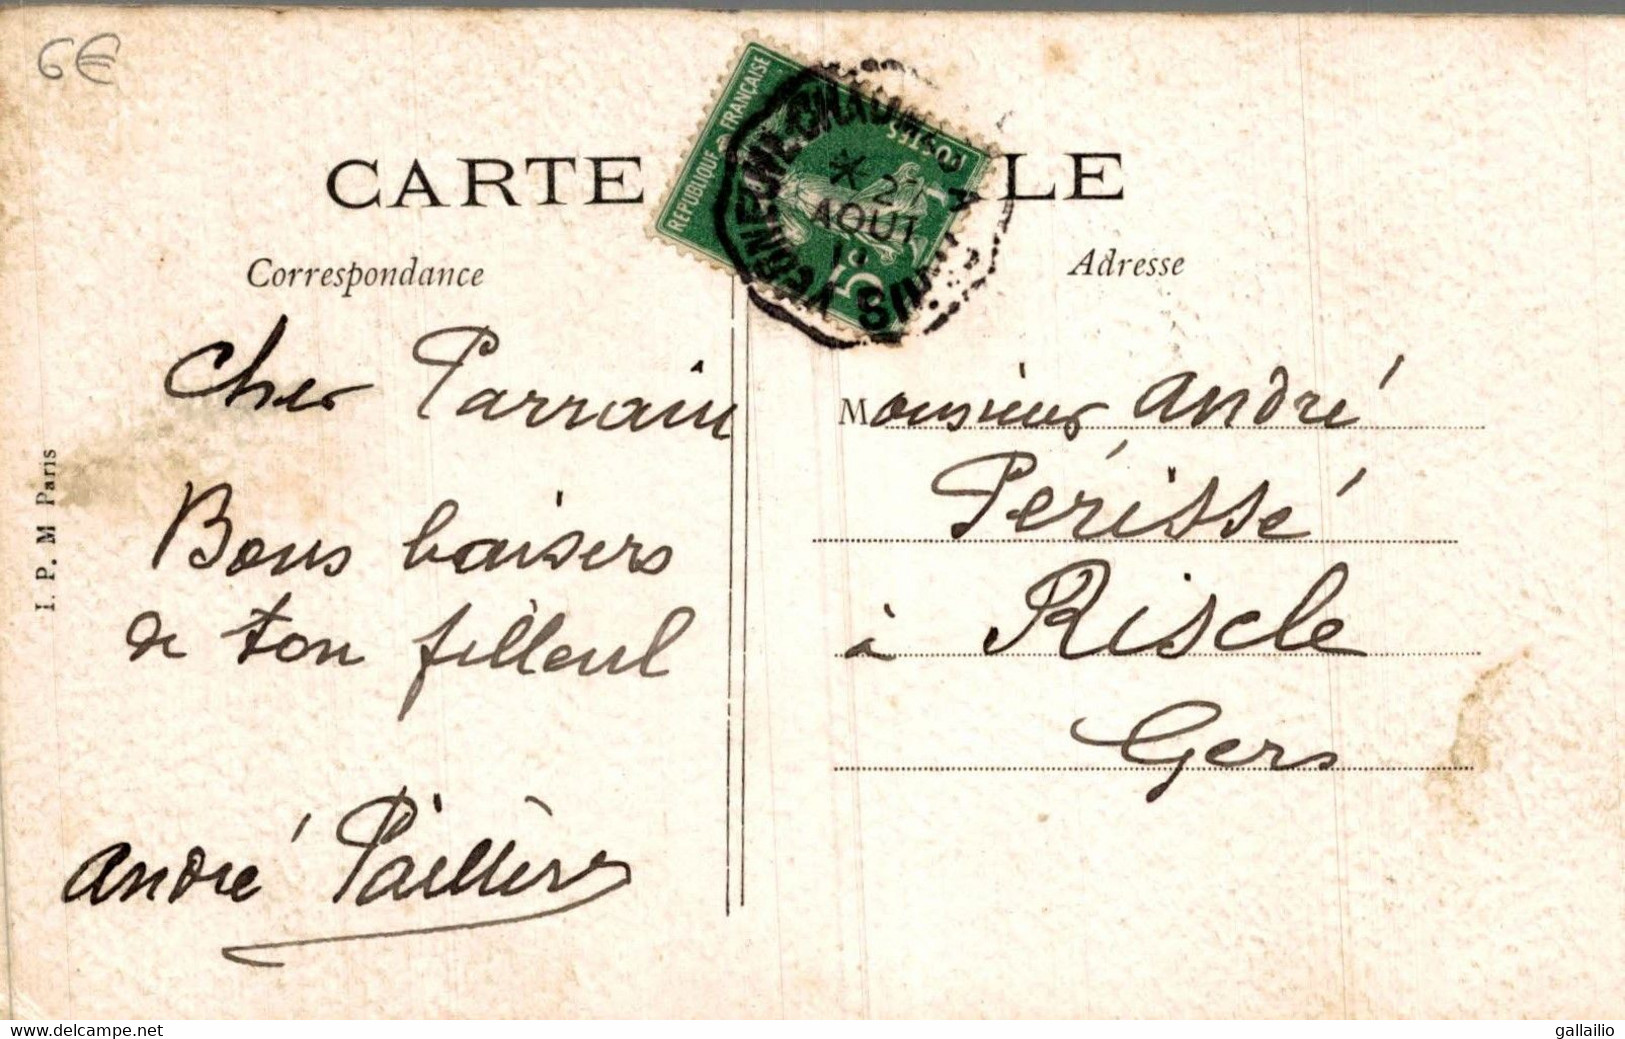 6€
CARTE
LE
RÉPUBLIQUE FRANÇAISE
POSTES
5
27
AOUT
Correspondance
Adresse
Cher Parrain
Bons baisers
de ton filleul
André Paillère
Monsieur André
Périssé
à Riscle
Gers
I. P. M Paris
www.delcampe.net
gallailio